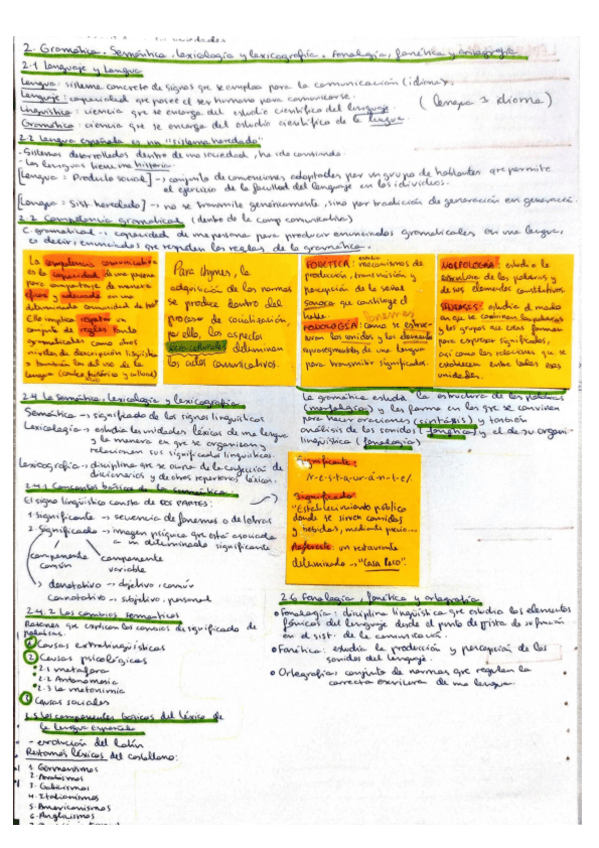 2. Gramática, Semántica, lexicología y lexicografía, Fonología, fonética y ortografía
2.1 Lenguaje y Lengua
Lengua: sistema concreto de signos que se emplea para la comunicación (idioma).
Lenguaje: capacidad que posee el ser humano para comunicarse.
(lengua = idioma)
Lingüística: ciencia que se encarga del estudio científico del lenguaje.
Gramática: ciencia que se encarga del estudio científico de la lengua.
2.2 Lengua española es un "sistema heredado"
- Sistemas desarrollados dentro de una sociedad, ha ido cambiando.
- Las lenguas tienen una historia.
[Lengua = Producto social] → conjunto de convenciones adoptadas por un grupo de hablantes que permite
el ejercicio de la facultad del lenguaje en los individuos.
[Lengua = Sist. heredado] → no se transmite genéticamente, sino por tradición de generación en generación.
2.2 Competencia gramatical (dentro de la comp comunicativa)
C. gramatical → capacidad de una persona para producir enunciados gramaticales en una lengua,
es decir, enunciados que respeten las reglas de la gramática.
La competencia comunicativa
es la capacidad de una persona
para comportarse de manera
eficaz y adecuada en una
determinada comunidad de
Ello implica respetar un
conjunto de reglas tanto
gramaticales como otros
niveles de descripción lingüística
y también las del uso de la
lengua (contexto histórico y cultural)
Para Hymes, la
adquisición de las normas
se produce dentro del
proceso de socialización,
por ello, los aspectos
socioculturales determinan
los actos comunicativos.
FONÉTICA: mecanismos de
producción, transmisión y
percepción de la señal
sonora que constituye el
habla.
fonemas
FONOLOGÍA: como se estruc-
turan los sonidos y los elementos
suprasegmentales de una lengua
para transmitir significados.
MORFOLOGÍA: estudia la
estructura de las palabras y
de sus elementos constitutivos.
SINTAXIS: estudia el modo
en que se combinan las palabras
y los grupos que estas forman
para expresar significados,
así como las relaciones que se
establecen entre todas esas
unidades.
2.4 La Semántica, lexicología y lexicografía
Semántica → significado de los signos lingüísticos
Lexicología → estudia las unidades léxicas de una lengua
y la manera en que se organizan y
relacionan sus significados lingüísticos.
Lexicografía → disciplina que se ocupa de la confección de
diccionarios y de otros repertorios léxicos.
La gramática estudia la estructura de las palabras
(morfología) y las forma en las que se combinan
para hacer oraciones (sintáxis) y también
análisis de los sonidos (fonética) y el de su organi-
lingüística (fonología)
2.4.1 Conceptos básicos de la semántica
El signo lingüístico consta de DOS PARTES:
1. Significante → secuencia de fonemas o de letras
2. Significado → imagen psíquica que está asociada
a un determinado significante
componente común
componente variable
denotativo → objetivo, común
connotativo → subjetivo, personal
Significante:
/r-e-s-t-a-u-r-á-n-t-e/
Significado:
"Establecimiento público
donde se sirven comidas
y bebidas, mediante precio..."
Referente: un restaurante
determinado → "Casa Paco".
2.4.2 Los cambios semánticos
Razones que explican los cambios de significado de
palabras.
1 Causas extralingüísticas
2 Causas psicológicas
2.1 metáfora
2.2 Antonomasia
2.3 La metonimia
3 Causas sociales
2.6 Fonología, fonética y ortografía
• Fonología: disciplina lingüística que estudia los elementos
fónicos del lenguaje desde el punto de vista de su función
en el sist. de la comunicación.
• Fonética: estudia la producción y percepción de los
sonidos del lenguaje.
• Ortografía: conjunto de normas que regulan la
correcta escritura de una lengua.
2.5 Los componentes básicos del léxico de
la lengua Española
- evolución del latín
léxicos del castellano:
1. Germanismos
2. Arabismos
3. Galicismos
4. Italianismos
5. Americanismos
6. Anglicismos